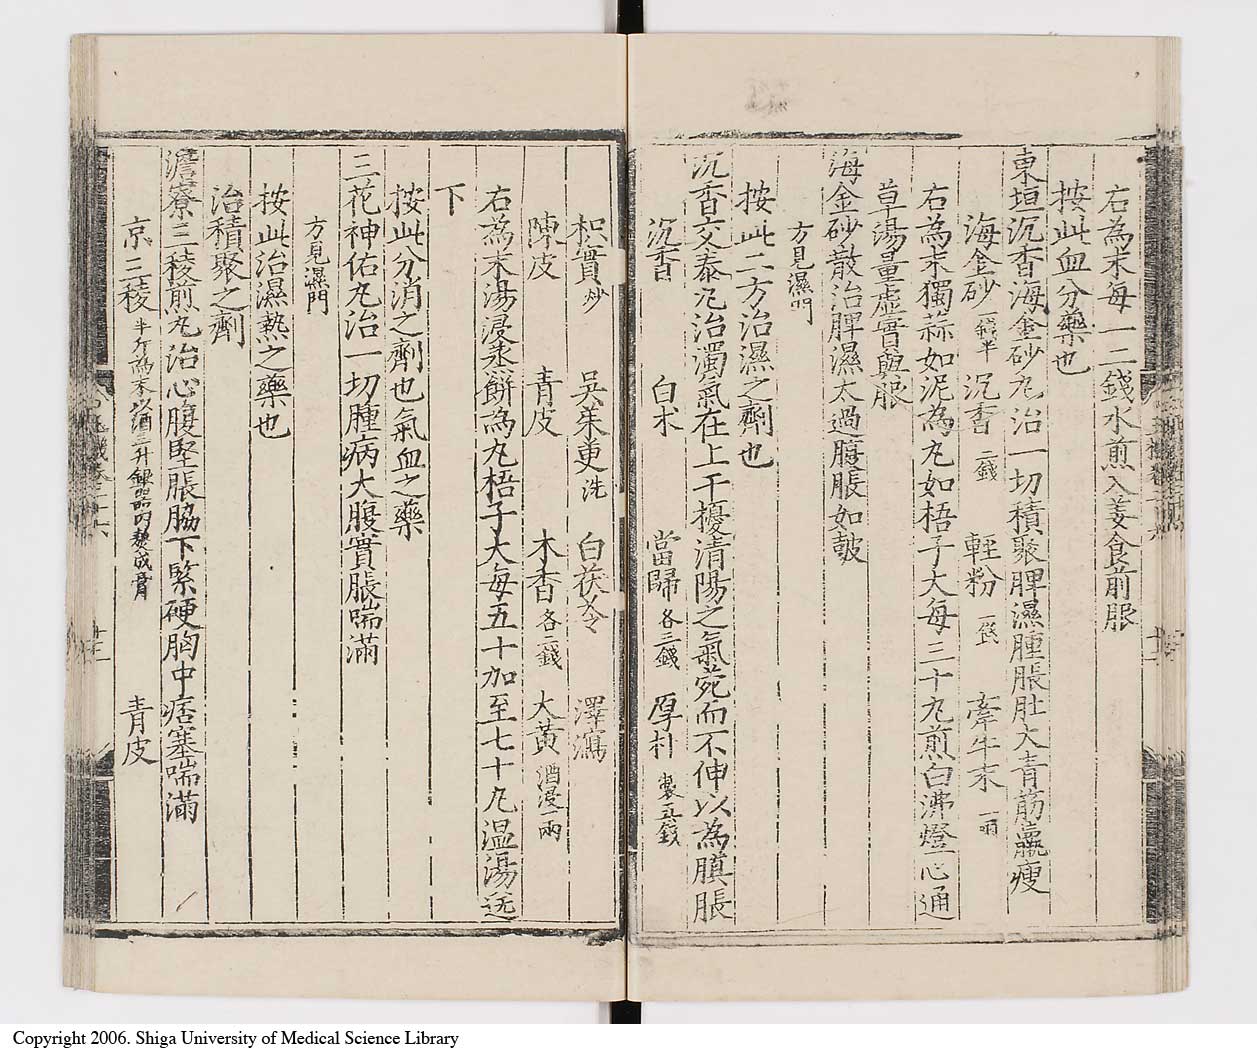 右為末每一二錢水煎入姜食前服
按此血分藥也
東垣沉香海金砂丸治一切積聚脾濕腫脹肚大青筋羸瘦
海金砂一錢半 沉香二錢 輕粉一錢 牽牛末一兩
右為末獨蒜如泥為丸如梧子大每三十丸煎白沸燈心通
草湯量虛實與服
海金砂散治脾濕太過腹脹如鼓
方見濕門
按此二方治濕之劑也
沉香交泰丸治濁氣在上干擾清陽之氣菀而不伸以為䐜脹
沉香 白朮 當歸各三錢 厚朴製五錢
枳實炒 吳茱萸洗 白茯苓 澤瀉
陳皮 青皮 木香各二錢 大黃酒浸一兩
右為末湯浸蒸餅為丸梧子大每五十加至七十丸温湯送
下
按此分消之劑也氣血之藥
三花神佑丸治一切腫病大腹實脹喘滿
方見濕門
按此治濕熱之藥也
治積聚之劑
澹寮三稜煎丸治心腹堅脹脇下緊硬胸中痞塞喘滿
京三稜半斤為末以酒三升銀器內熬成膏 青皮
Copyright 2006. Shiga University of Medical Science Library